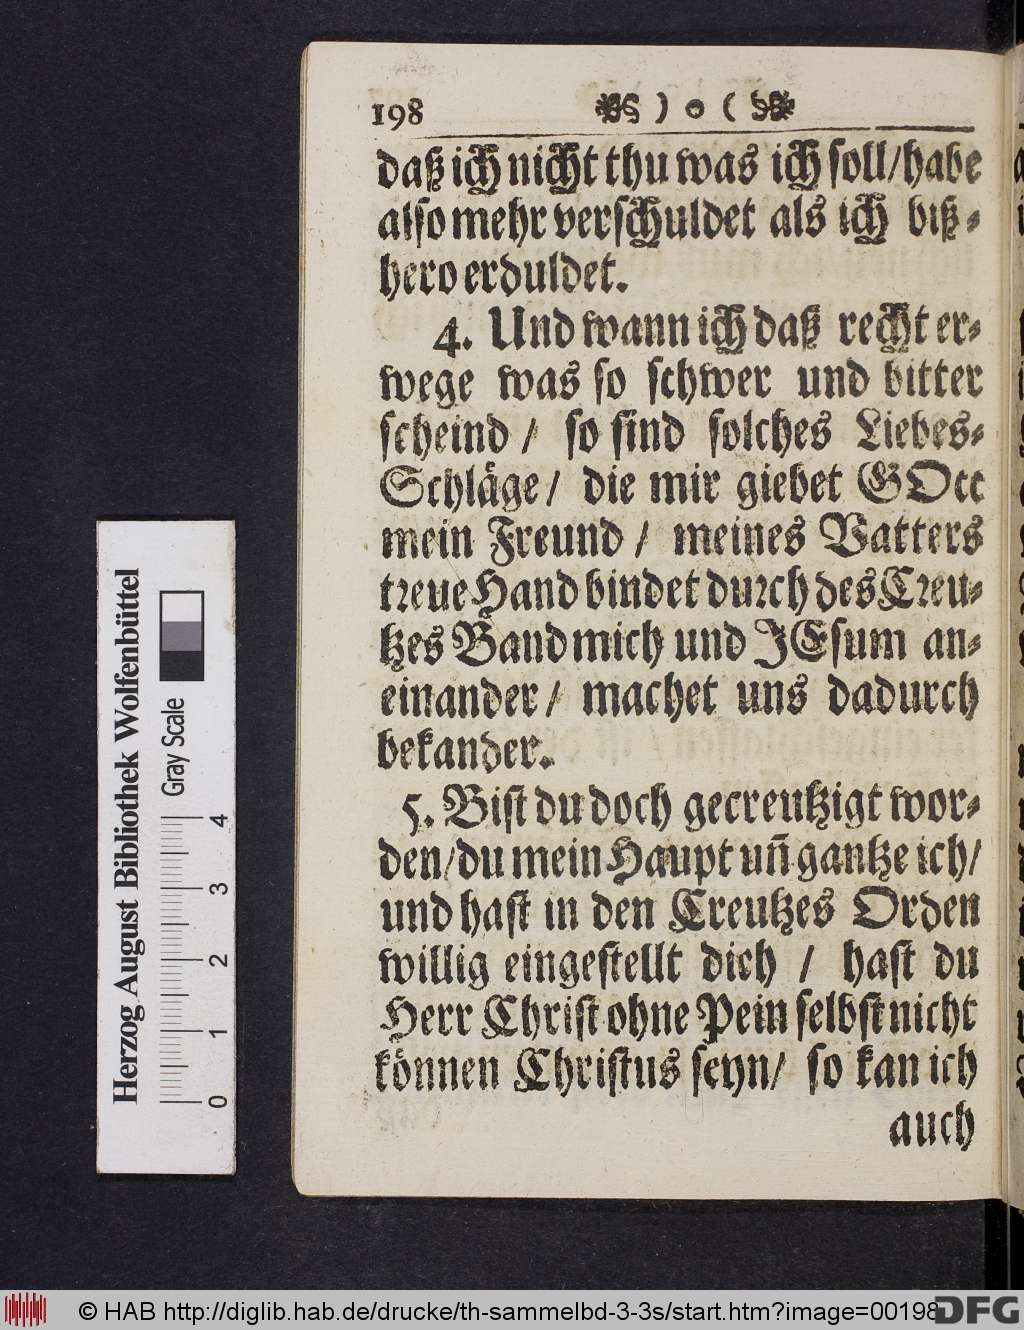 198 ) o (
daß ich nicht thu was ich soll/habe
also mehr verschuldet als ich biß-
hero erduldet.
4. Und wann ich daß recht er-
wege was so schwer und bitter
scheind / so sind solches Liebes-
Schläge / die mir giebet GOtt
mein Freund / meines Vatters
treue Hand bindet durch des Creu-
tzes Band mich und JEsum an-
einander / machet uns dadurch
bekander.
5. Bist du doch gecreutzigt wor-
den/du mein Haupt uñ gantze ich/
und hast in den Creutzes Orden
willig eingestellt dich / hast du
Herr Christ ohne Pein selbst nicht
können Christus seyn/ so kan ich
auch
Herzog August Bibliothek Wolfenbüttel
Gray Scale
0 1 2 3 4
© HAB http://diglib.hab.de/drucke/th-sammelbd-3-3s/start.htm?image=00198
DFG